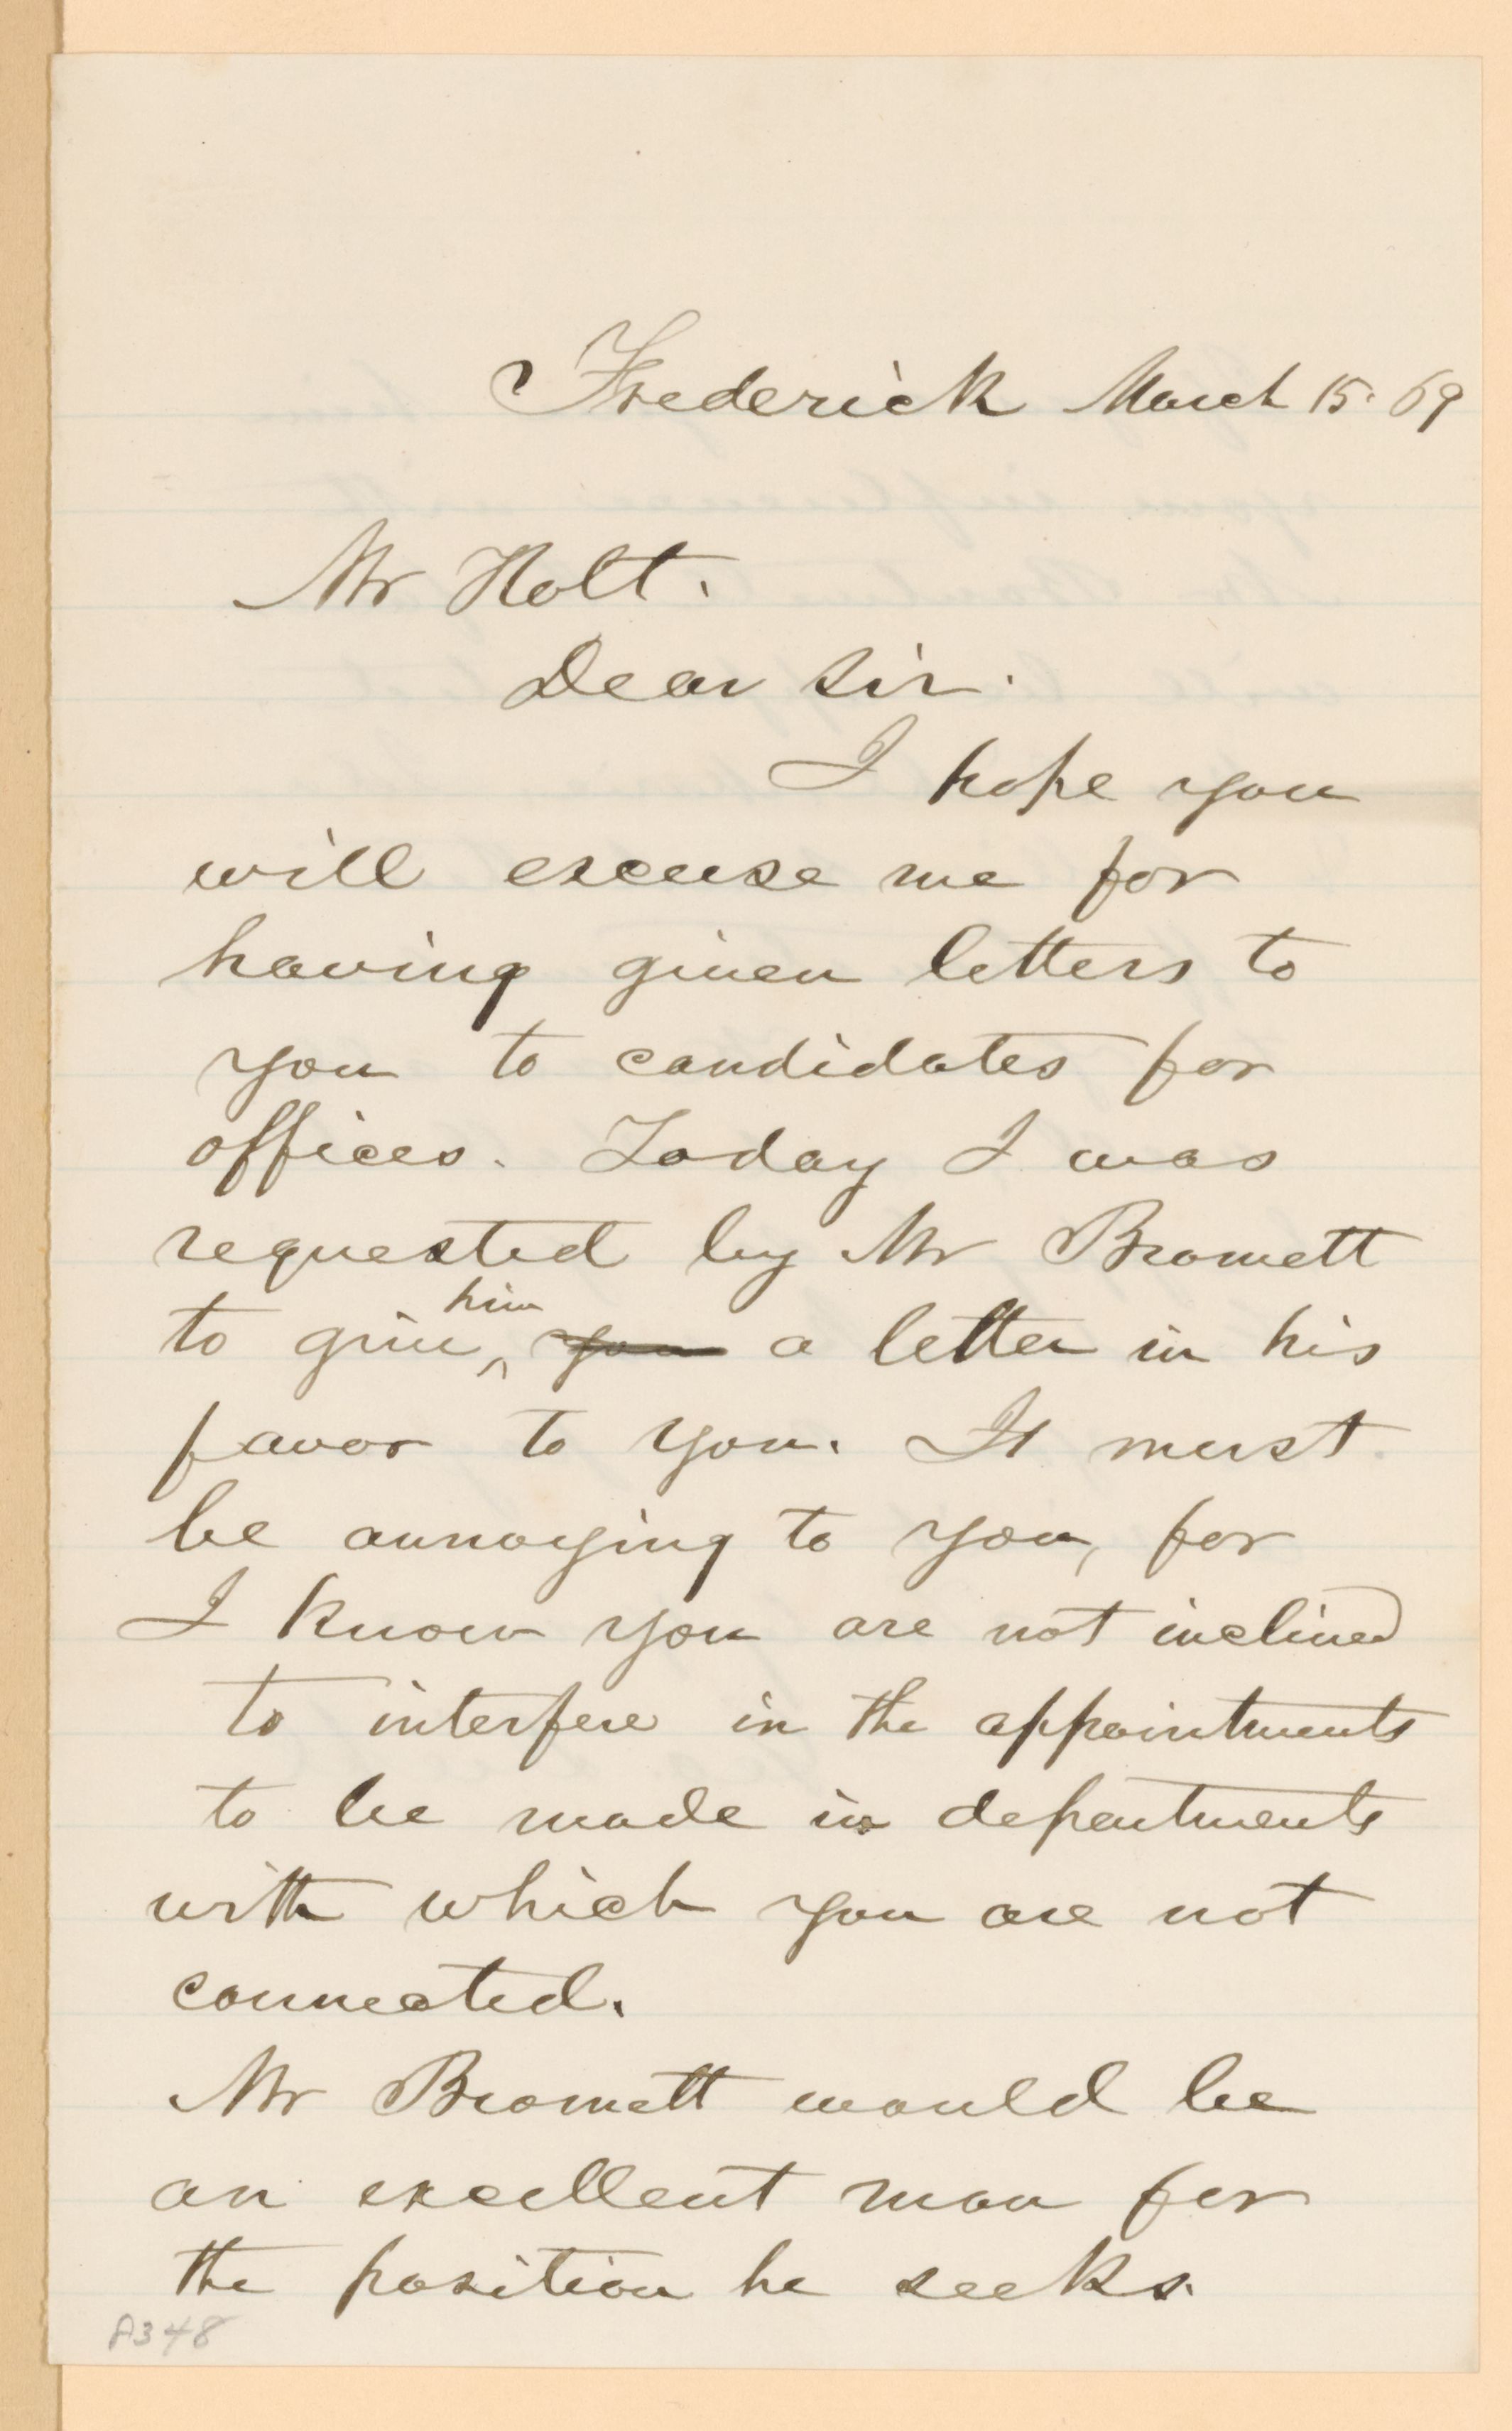 Frederick March 15. 69
Mr Holt.
Dear Sir.
I hope you
will excuse me for
having given letters to
you to candidates for
offices. Today I was
requested by Mr Bromett
to give him you a letter in his
favor to you. It must
be annoying to you, for
I know you are not inclined
to interfere in the appointments
to be made in departments
with which you are not
connected.
Mr Bromett would be
an excellent man for
the position he seeks.
A348